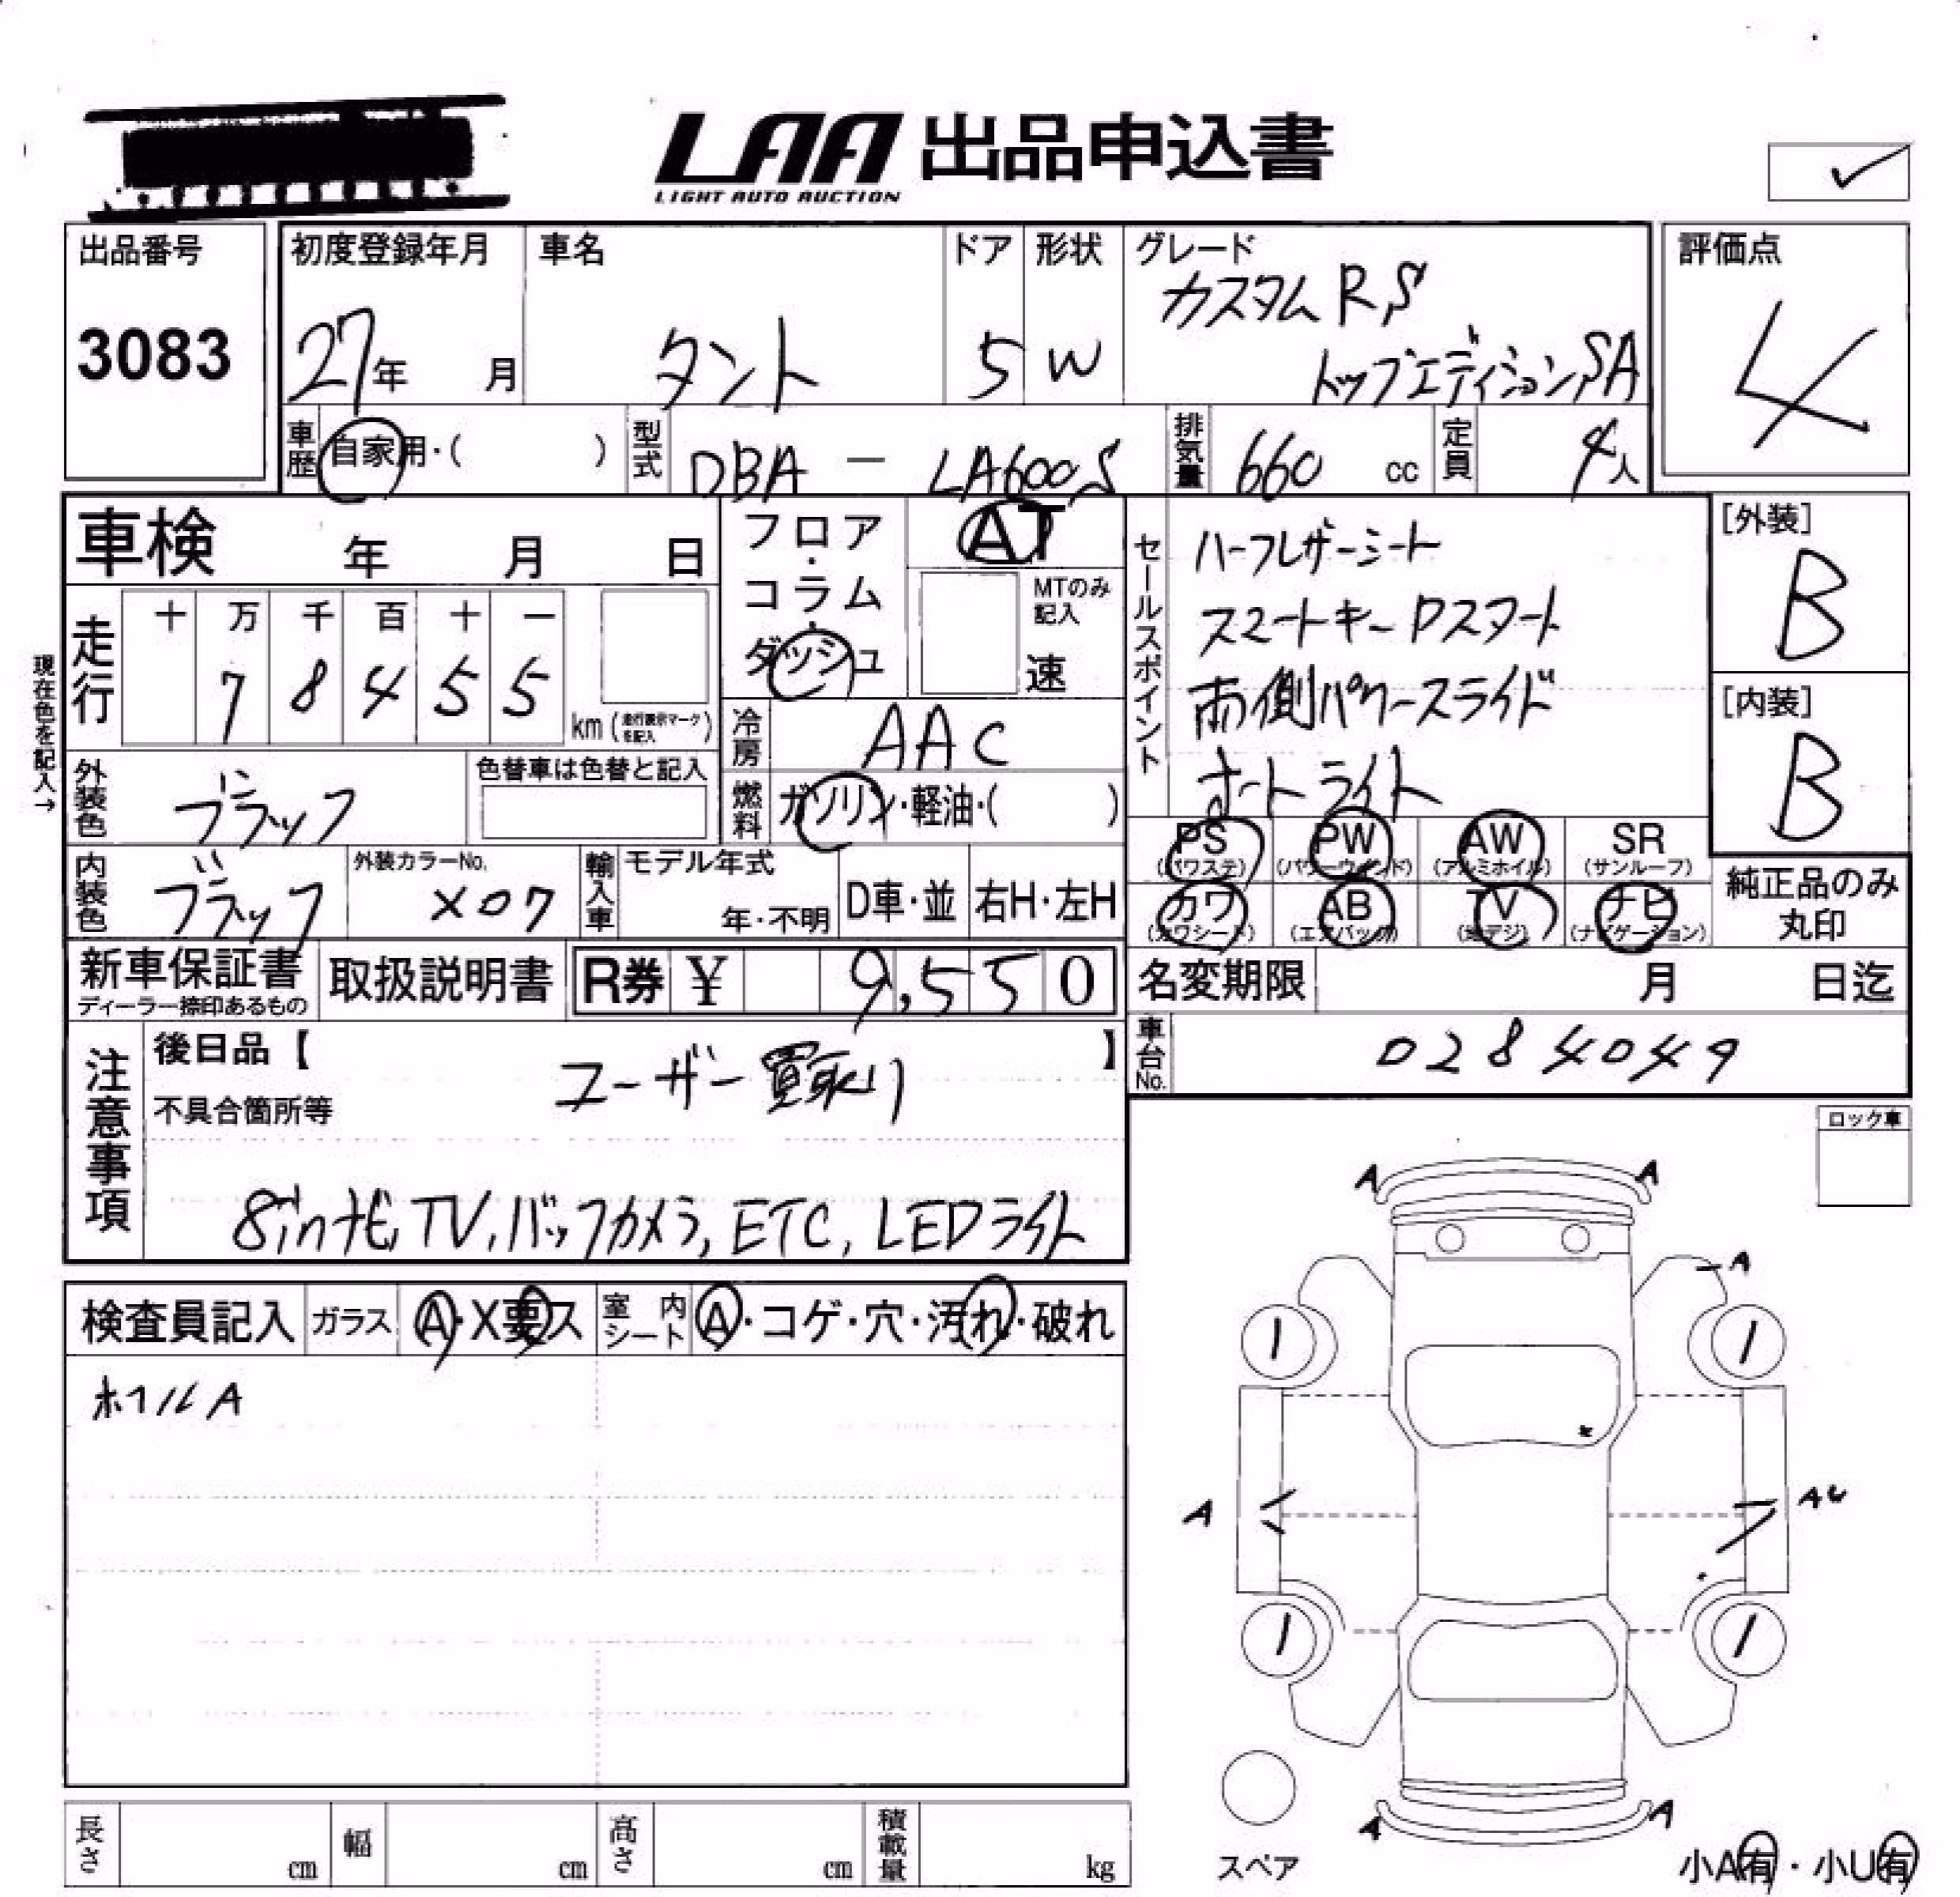 LAA 出品申込書
LIGHT AUTO AUCTION
出品番号
3083
初度登録年月
27年 月
車名
タント
ドア
5
形状
W
グレード
カスタムRS
トップエディションSA
評価点
4
車歴 自家用・( )
型式 DBA - LA600S
排気量 660 cc
定員 4人
車検 年 月 日
フロア・コラム・ダッシュ
AT
MTのみ記入
速
セールスポイント
ハーフレザーシート
スマートキー Pスタート
両側パワースライド
オートライト
[外装]
B
[内装]
B
現在色を記入→
走行 十 万 千 百 十 一
7 8 4 5 5
km (走行表示マークを記入)
冷房 AAC
外装色 ブラック
色替車は色替と記入
燃料 ガソリン・軽油・( )
PS (パワステ) PW (パワーウインド) AW (アルミホイル) SR (サンルーフ)
カワ (カワシート) AB (エアバッグ) TV (地デジ) ナビ (ナビゲーション)
純正品のみ丸印
内装色 ブラック
外装カラーNo.
X07
輸入車
モデル年式
年・不明
D車・並
右H・左H
新車保証書
ディーラー捺印あるもの
取扱説明書
R券 ¥ 9,550
名変期限 月 日迄
車台No. 0284049
注意事項
後日品【 】
ユーザー買取り
不具合箇所等
8inナビ, TV, バックカメラ, ETC, LEDライト
ロック車
検査員記入 ガラス A・X要ス 室内シート A・コゲ・穴・汚れ・破れ
ホイルA
A A
A
A AU
A A
スペア
小A有・小U有
長さ cm 幅 cm 高さ cm 積載量 kg